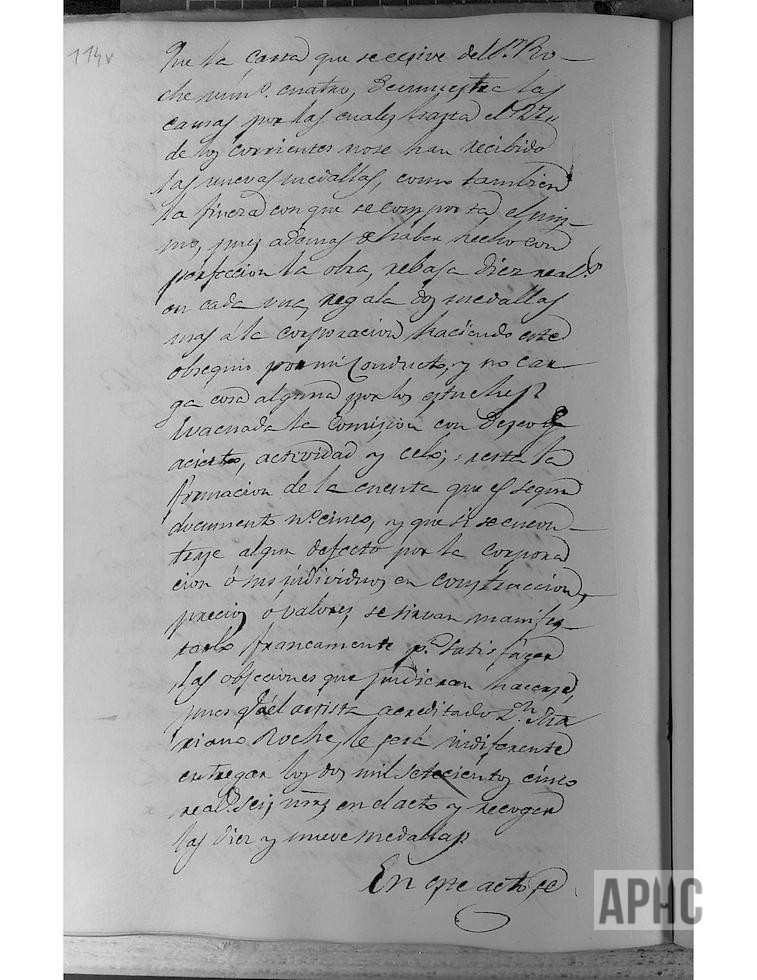 114v
Que la carta que se recive del Sr. Ro-
che núm.º cuatro, demuestra las
causas por las cuales hasta el 27,,
de los corrientes no se han recibido
las nuevas medallas, como tambien
la fineza con que se comporta el mis-
mo, pues ademas de haber hecho con
perfeccion la obra, rebaja diez real.s
en cada una, regala dos medallas
mas a la corporacion haciendo este
obsequio por mi conducto, y no car
ga cosa alguna por los estuches.
Evacuada la Comision con deseo de
acierto, actividad y celo; resta la
formacion de la cuenta que es segun
documento nº. cinco, y que si se encon-
traje algun defecto por la corpora
cion ó sus individuos en construccion,
precios ó valores, se sirvan manifes-
tarlo francamente p.ª satisfacer
las objeciones que pudieran hacerse,
pues q.e al artista acreditado D.n Ma
riano Roche, le será indiferente
entregar los dos mil setecientos cinco
real.s seis mrs en el acto y recoger
las diez y nueve medallas.
En este acto se
APHC